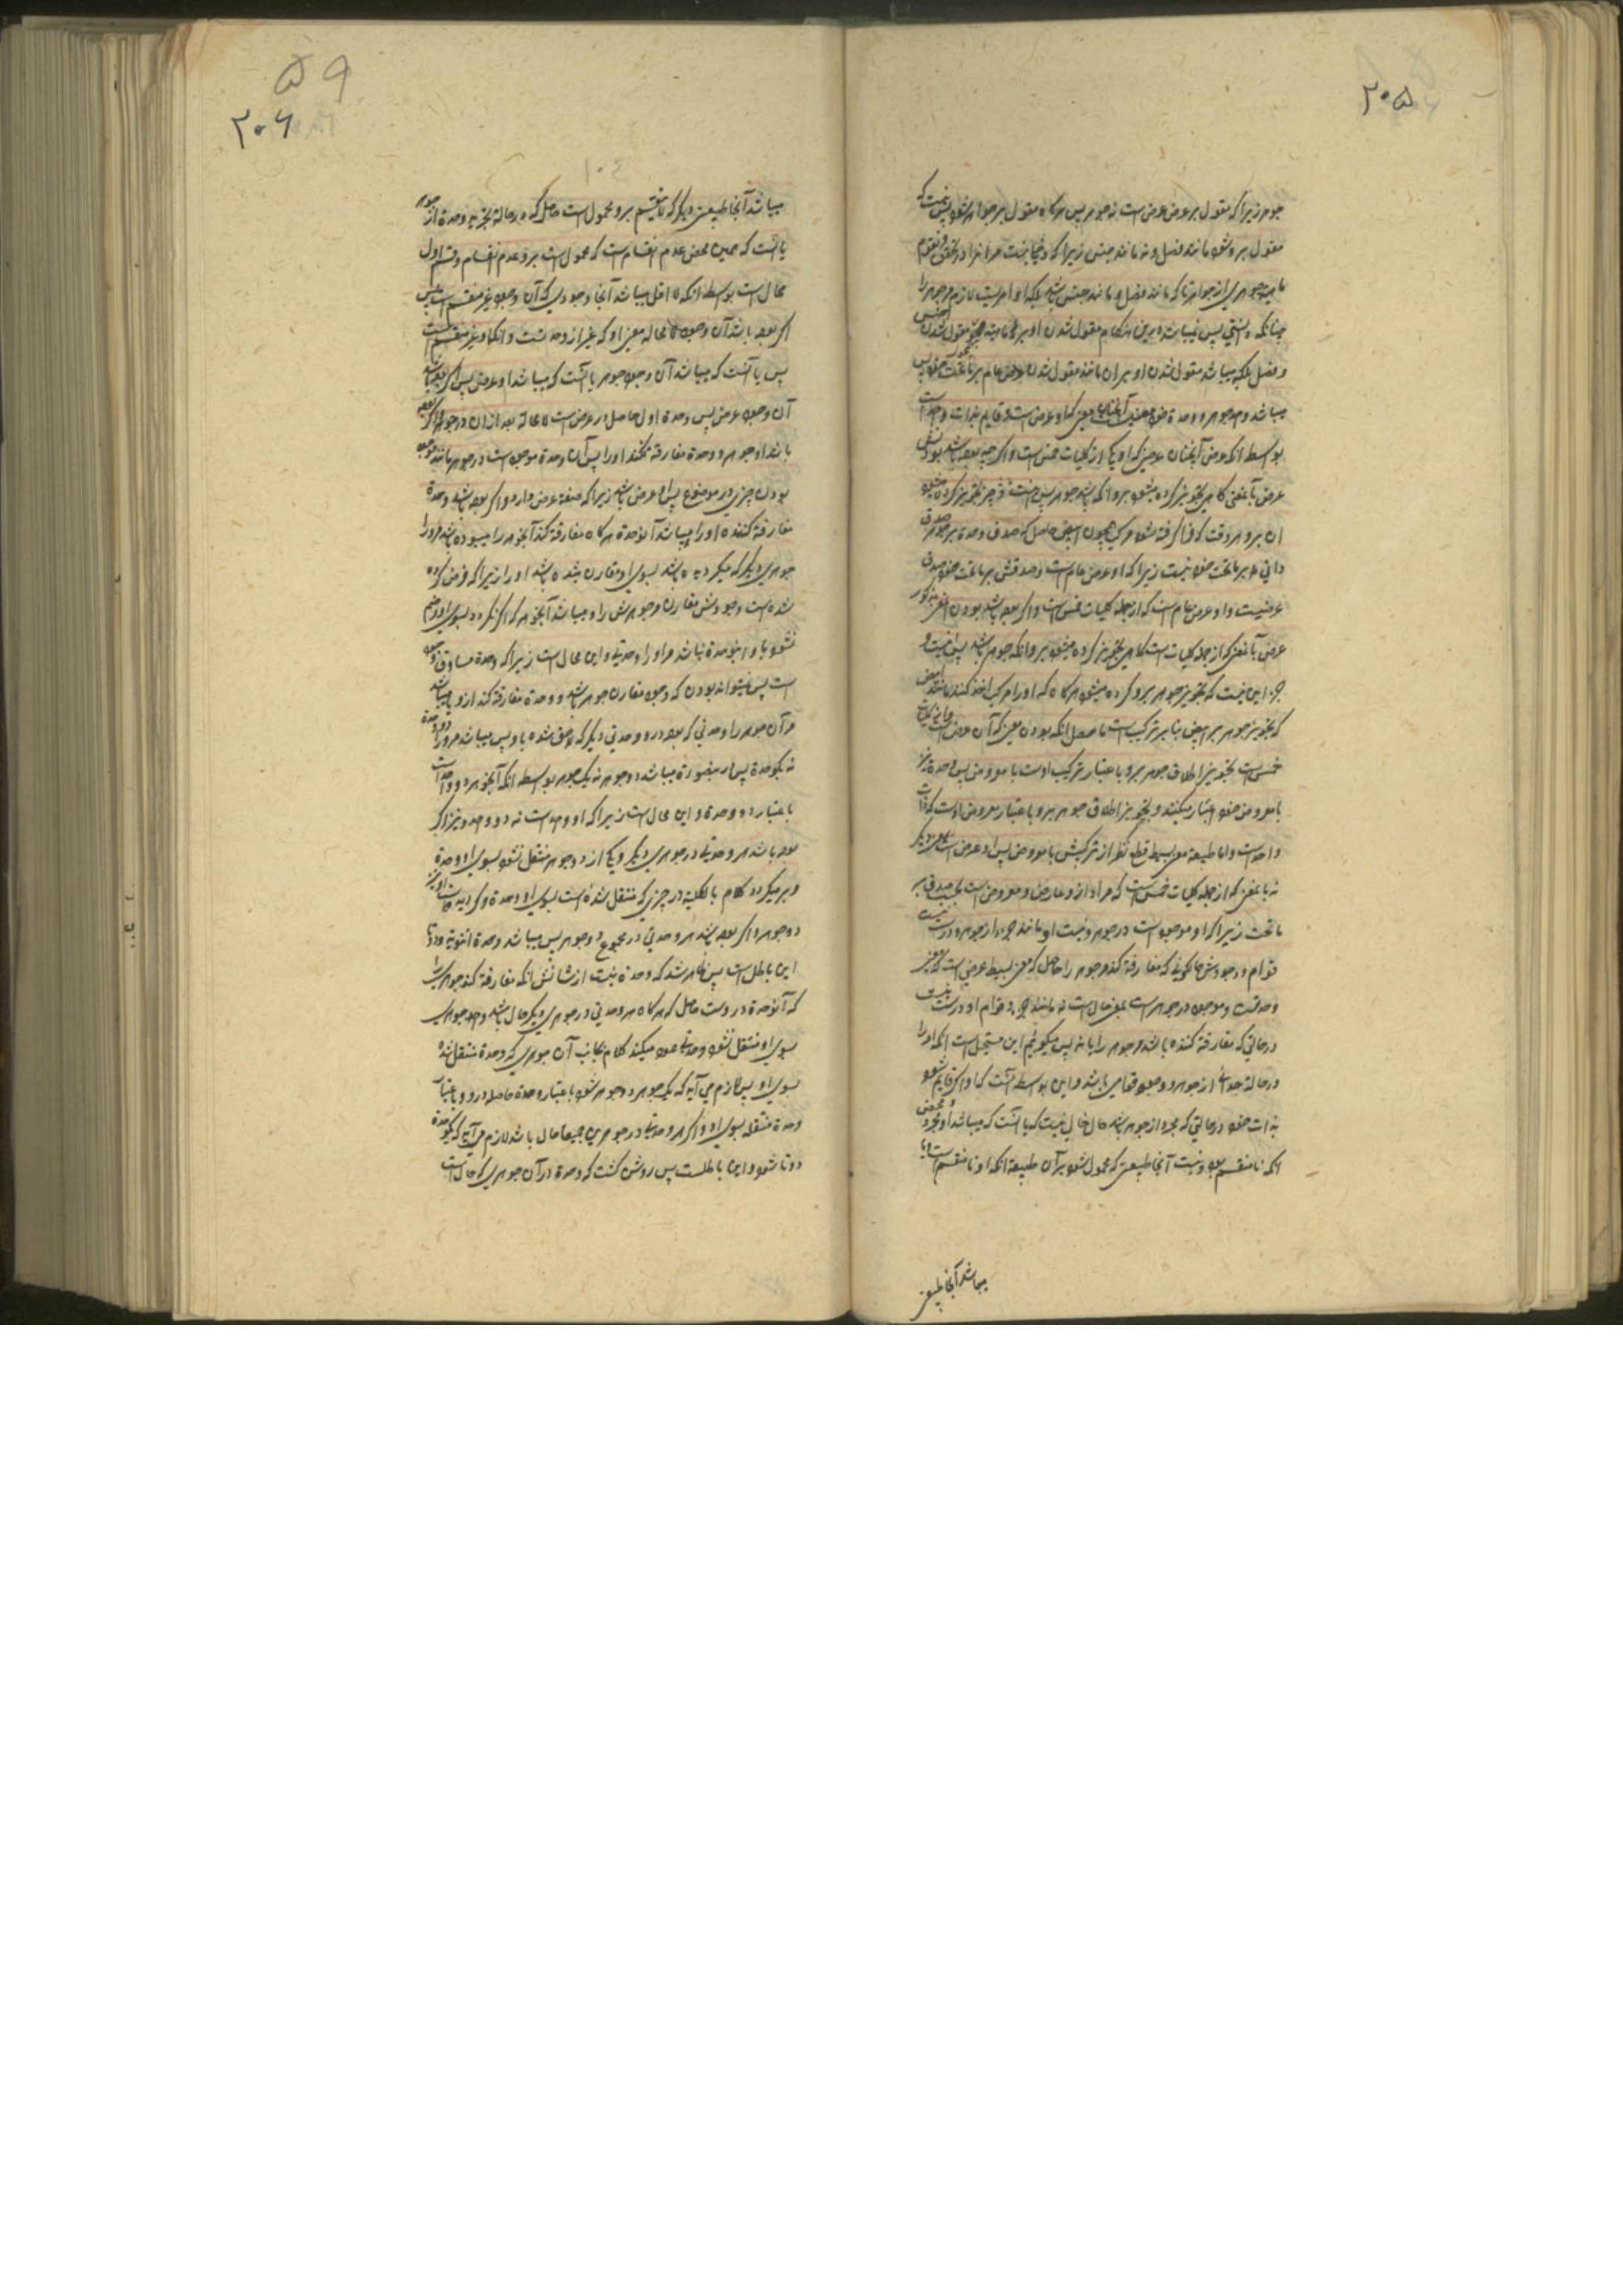 ۲۰۵
جوهر زیرا که مقول بر عرض عرض است نه جوهر پس هر کاه مقول بر جواهر شود پس نیست که
مقول برو شود مانند فصل و نه مانند جنس زیرا که دخالت نیست مر انرا در تحقق و تقوم
ماهیة جوهری از جواهر تا که مانند فصل و مانند جنس باشد بلکه او امریست لازم مر جوهر را
چنانکه دانستی پس نمیباشد درین هنکام مقول شدن او بر ماهیة مقول شدن جنس
و فصل بلکه میباشد مقول شدن او بر ان مانند مقول شدن عرض عام بر ماتحت خود پس
میباشد واحد جوهر و وحدة معنی که او عرض است و قایم بذات واحد است
بواسطه انکه عرض آنچنان عرضی که او یکی از کلیات خمس است و اگر چه بوده باشد بودنش
عرض بآنمعنی کاهی تجویز کرده میشود برو انکه باشد جوهر پس نیست تجویز کرده میشود
ان برو هر وقت که فرا گرفته شود مرکب همچون ابیض حاصل که صدق وحدة بر جوهر صدق
ذاتی بر ماتحت خود نیست زیرا که او عرض عام است و صدقش بر ماتحت خود صدق
عرضیست و او عرض عام است که از جمله کلیات خمس است و اگر بوده باشد بودن مذکور
عرض بآنمعنی که از جمله کلیات است کاهی تجویز کرده میشود برو انکه جوهر باشد پس نیست
جز این نیست که تجویز جوهر برو کرده میشود هر کاه که او را مرکب اخذ کنند مانند ابیض
که تجویز جوهر بر ابیض بنا بر ترکیب است حاصل انکه بودن معنی که آن عرض است
خمس است تجویز اطلاق جوهر برو باعتبار ترکیب اوست با معروض پس وحدة نیز
با معروض خود اعتبار میکنند و تجویز اطلاق جوهر برو باعتبار معروض اوست که ذات
واحد است و اما طبیعة معنی بسیط قطع نظر از ترکیبش با معروض پس او عرض است بمعنی دیگر
نه بآنمعنی که از جمله کلیات خمس است که مراد ازو عارض و معروض است بحسب صدق بر
ماتحت زیرا که او موجود است در جوهر و نیست او مانند جزء از جوهر و درست نیست
قوام و وجودش حالکونی که مفارقة کند جوهر را حاصل که معنی بسیط عرضی است که معنی
وحدتست و موجود در جوهر است بمعنی حال است نه مانند جزء و قوام او درست نیست
در حالتی که مفارقة کننده باشد جوهر را یا نه پس میکوئیم این مستحیل است انکه او را
در حالة جدائی از جوهر و وجود قیامی باشد و این بواسطه آنست که او اکر قایم شود
بذات خود در حالتی که مجرد از جوهر باشد حال خالی نیست که یا آنست که میباشد او مجرد
انکه نا منقسم بود و نیست آنجا طبیعتی که محمول شود بر آن طبیعة انکه او نا منقسم است یا
میباشد آنجا طبیعتی
۵۹
۲۰۶
۱۰٤
میباشد آنجا طبیعتی دیگر که نامنقسم برو محمول است حاصل که در حالة تجرید وحدة از جوهر
یا آنست که همین محض عدم انقسام است که محمول است برو عدم انقسام و قسم اول
محال است بواسطه انکه لا اقل میباشد آنجا وجودی که آن وجود غیر منقسم است پس
اگر بوده باشد آن وجود لا محاله معنی او که غیر از وحدتست و انکه او غیر منقسم است
پس یا آنست که میباشد آن وجود جوهر یا آنست که میباشد او عرض پس اگر بوده باشد
آن وجود عرض پس وحدة اول حاصل در عرض است لا محاله بعد ازان در جوهر و اگر بوده
باشد او جوهر و وحدة مفارقة نکند او را پس آن وحدة موجود است در جوهر مانند موجود
بودن چیزی در موضوع پس او عرض باشد زیرا که صفة عرض دارد و اگر بوده باشد وحدة
مفارقة کننده او را میباشد آنوحدة هر کاه مفارقة کند آنجوهر را میبوده باشد مر او را
جوهری دیگر که میکردیده باشد بسوی او مقارن شده باشد او را زیرا که فرض کرده
شده است وجودش مقارن مر جوهرش را و میباشد آنجوهر که اگر نکردد بسوی او و ضم
نشود باو اینوحدة نباشد مر او را وحدتی و این محال است زیرا که وحدة مساوق وجود
است پس نمیتواند بودن که وجود مقارن جوهر باشد و وحدة مفارقة کند ازو یا میباشد
مر آن جوهر را وحدتی که بوده در و وحدتی دیگر که ملحق شده باو پس میباشد مر او را دو وحدة
نه یکوحدة پس درینصورة میباشد دو جوهر نه یک جوهر بواسطه انکه آنجوهر دو واحد است
باعتبار دو وحدة و این محال است زیرا که او واحد است نه دو واحد و نیز اگر
بوده باشد هر وحدتی در جوهری دیگر و یکی از دو جوهر منتقل نشود بسوی او وحدة
و بر میکردد کلام بالکلیه در چیزی که منتقل شده است بسوی او وحدة و کردیده است او نیز
دو جوهر و اگر بوده باشد هر وحدتی در مجموع دو جوهر پس میباشد وحدة اثنوة و دوتا
این باطل است پس ظاهر شد که وحدة نیست از شانش انکه مفارقة کند جوهری را
که آنوحدة در وست حاصل که هر کاه هر وحدتی در جوهری دیگر حال باشد واحد جوهری
بسوی او منتقل نشود وحدتی عود میکند کلام بجانب آن جوهری که وحدة منتقل شده
بسوی او پس لازم می آید که یک جوهر دو جوهر شود باعتبار وحدة حاصله درو و باعتبار
وحدة منتقله بسوی او و اگر هر وحدتی در جوهرین جمیعا حال باشد لازم می آید که یکوحدة
دوتا شود و این باطلست پس روشن کشت که وحدة در آن جوهری که حال است